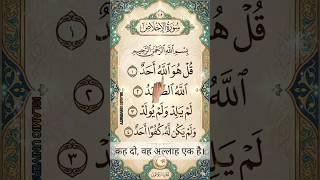 سُورَةُ الإِخْلَاصِ
بِسْمِ اللَّهِ الرَّحْمَٰنِ الرَّحِيمِ
قُلْ هُوَ اللَّهُ أَحَدٌ ١
اللَّهُ الصَّمَدُ ٢
لَمْ يَلِدْ وَلَمْ يُولَدْ ٣
وَلَمْ يَكُن لَّهُ كُفُوًا أَحَدٌ ٤
कह दो, वह अल्लाह एक है।